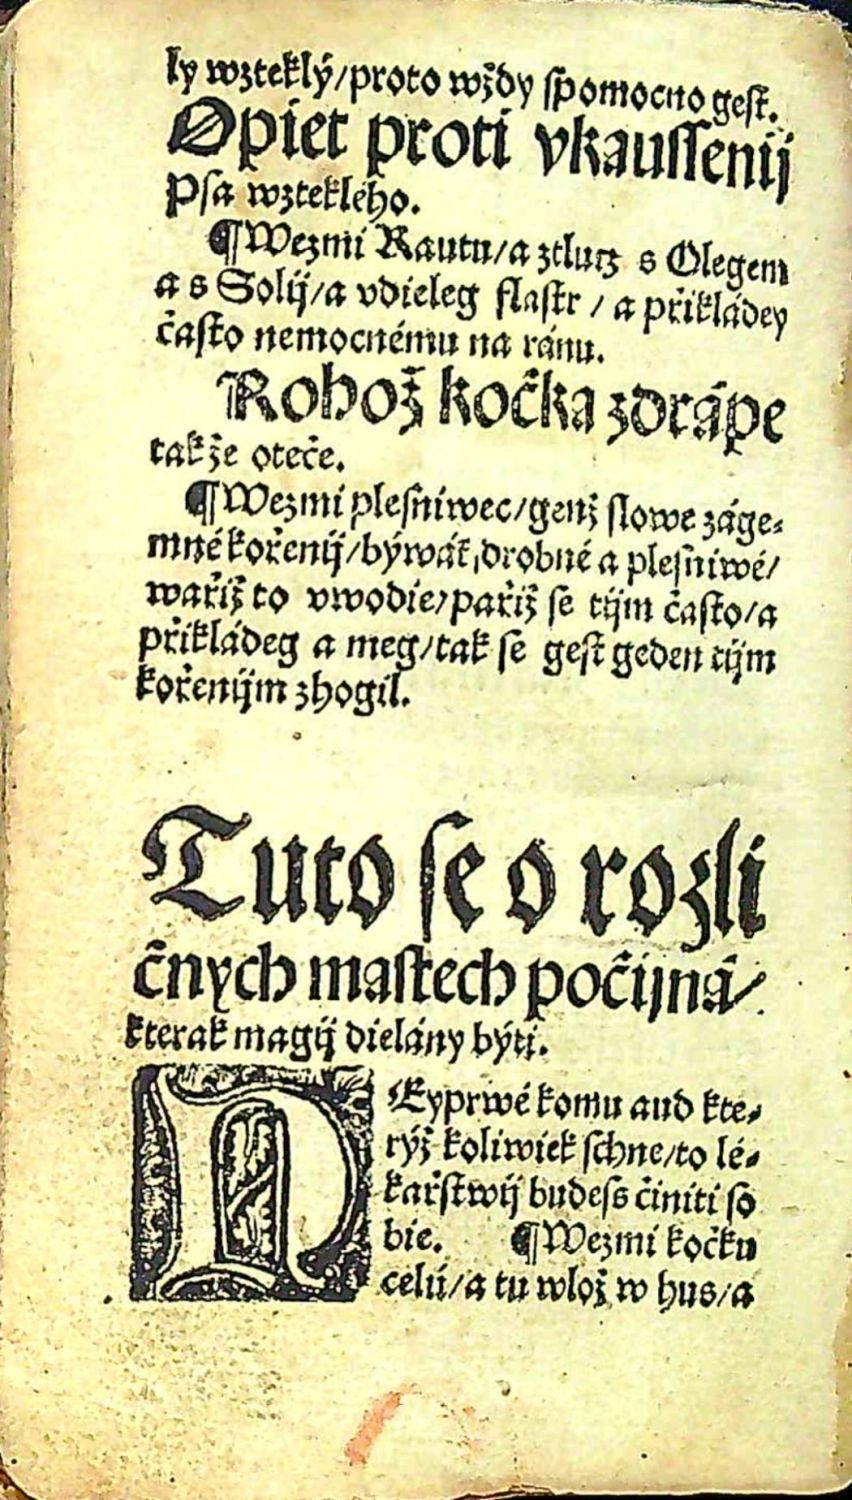 ly wzteklý/proto wždy spomocno gest.
Opiet proti vkaussenij
Psa wzteklého.
¶Wezmi Rautu/a ztlucz s Olegem
a s Solij/a vdieleg flastr / a přikládey
často nemocnému na ránu.
Kohož kočka zdrápe
takže oteče.
¶Wezmi plesniwec/genž slowe záge-
mné kořenij/býwáť drobné a plesniwé/
wařiž to vwodie/pařiž se tijm často/a
přikládeg a meg/tak se gest geden tijm
kořenijm zhogil.
Tuto se o rozli
čných mastech počijná/
kterak magij dielány býti.
NEyprwé komu aud kte-
rýž koliwiek schne/to lé-
kařstwij budess činiti so
bie. ¶Wezmi kočku
celú/a tu wlož w hus/a